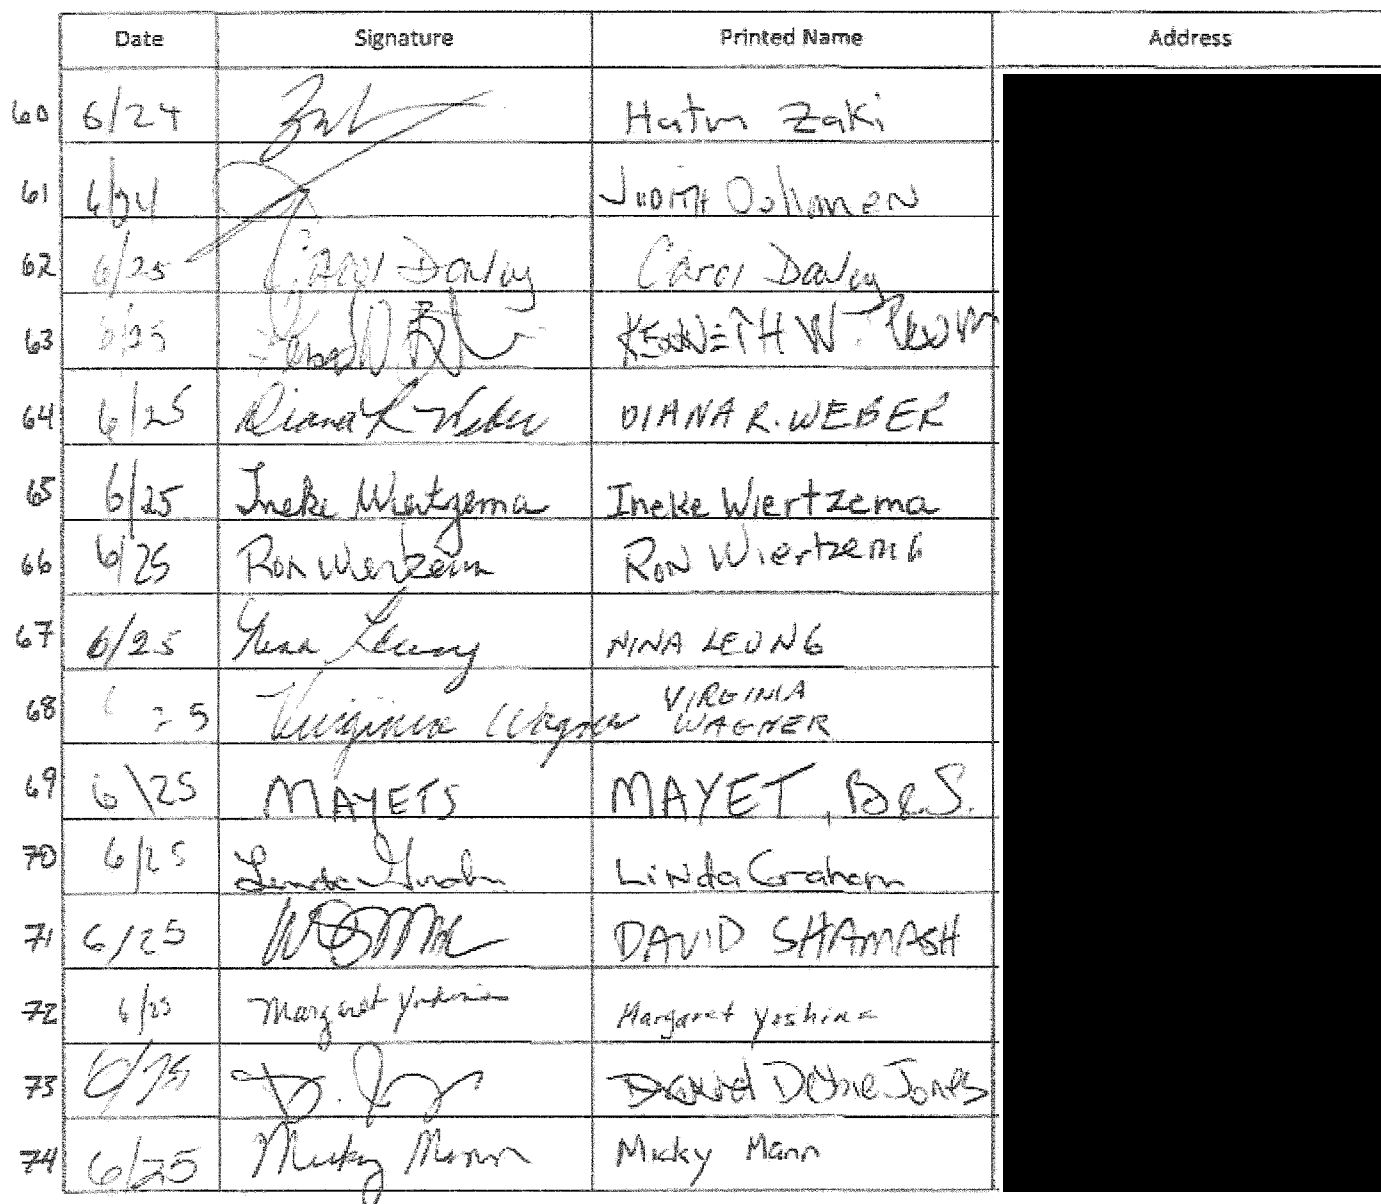 Date Signature Printed Name Address
60 6/24 Hatm Zaki
61 6/24 JUDITH
62 6/25 Carol Daley Carol Daley
63 6/25 KENNETH W.
64 6/25 Diana R Weber DIANA R. WEBER
65 6/25 Ineke Wiertzema Ineke Wiertzema
66 6/25 Ron Wiertzema Ron Wiertzema
67 6/25 Nina Leung NINA LEUNG
68 Virginia Wagner VIRGINIA
WAGNER
69 6\25 MAYETS MAYET,
70 6/25 Linda Graham Linda Graham
71 6/25 DAVID SHAMASH
72 6/25 Margaret Margaret
73 6/25 D. David Jones
74 6/25 Micky Mann Micky Mann